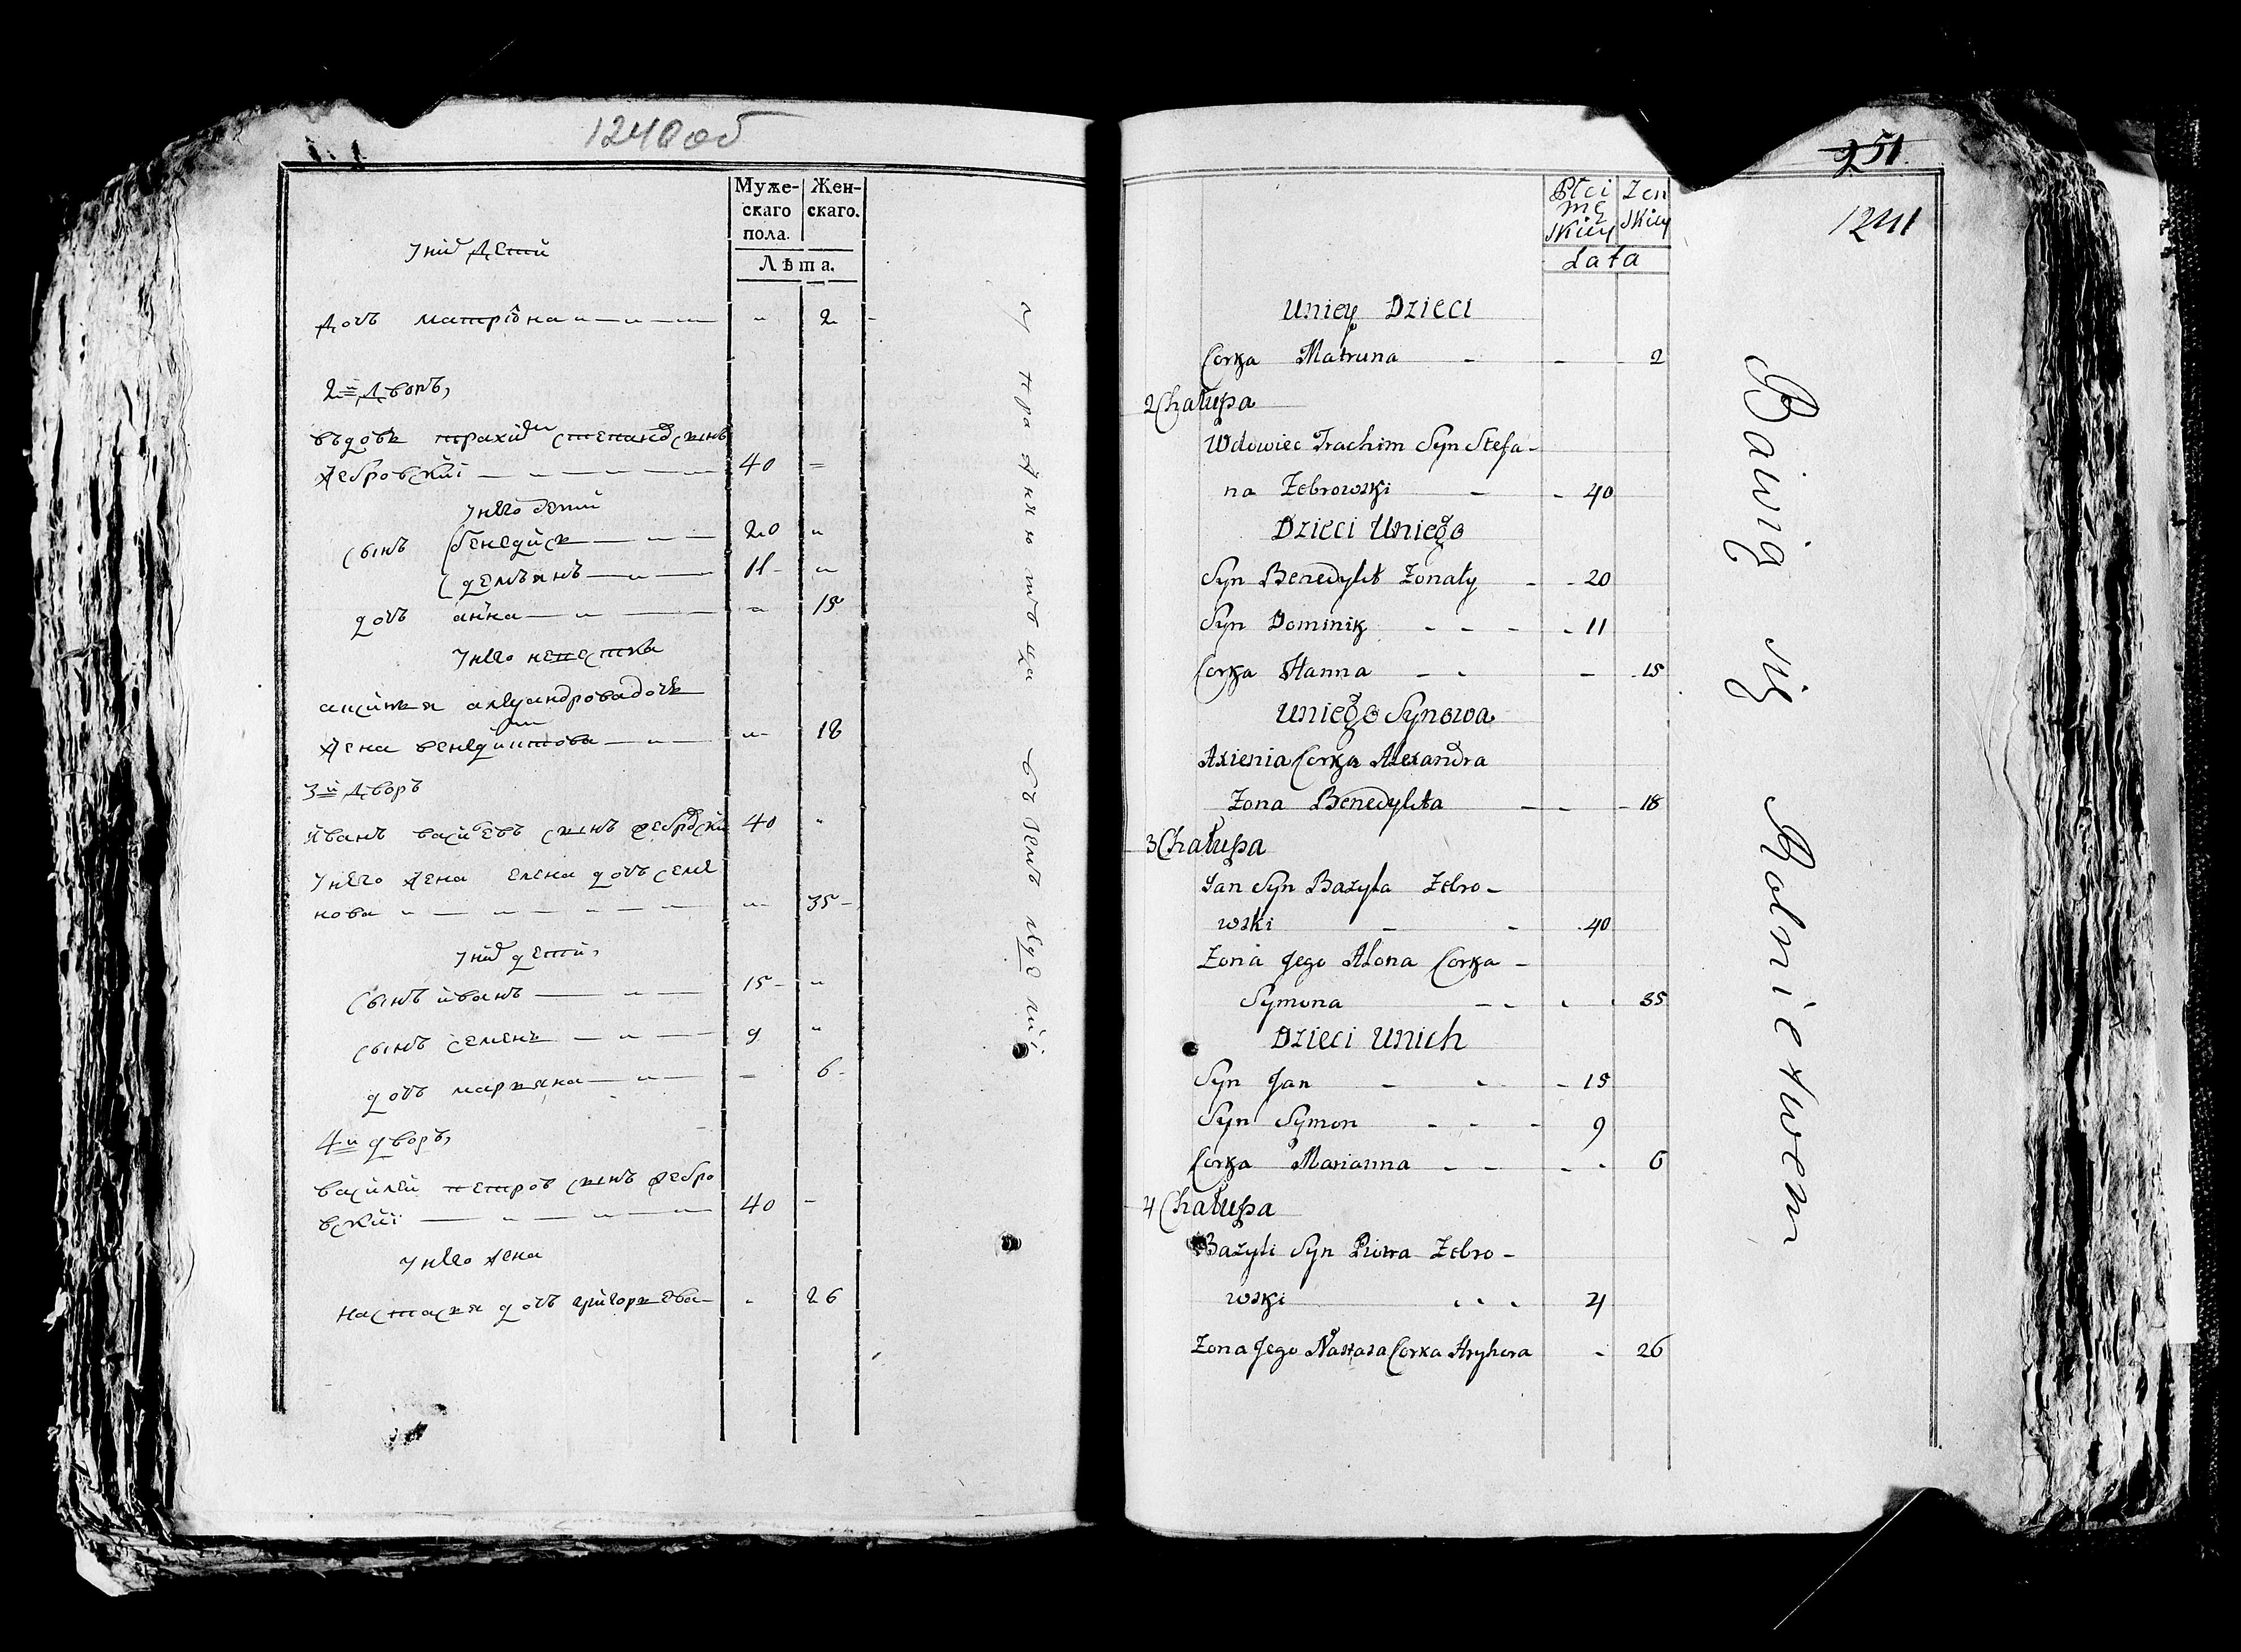 1240 об
Муже-
скаго
пола.
Жен-
скаго.
Лѣта.
у них дети
дочь матрiона 2
2й дворъ,
въдовъ трахим степанов сынъ
жебровский 40
у него дети
сынъ бенедикт 20
демьянъ 11
дочь анна 15
у него невестка
аксиния александрова дочь
жена бенедиктова 18
3й дворъ
иванъ васильевъ сынъ жебровский 40
у него жена елена дочь семе
нова 35
у них дети,
сынъ иванъ 15
сынъ семенъ 9
дочь марьяна 6
4й дворъ,
василей петров сынъ жебро
вский 40
у него жена
настасья дочь григорьева 26
251
1241
Płci
męskiey
Żen
skiey
Lata
Uniey Dzieci
Corka Matruna 2
2 Chałupa
Wdowiec Trachim Syn Stefa-
na Żebrowski 40
Dzieci Uniego
Syn Benedykt Żonaty 20
Syn Dominik 11
Corka Hanna 15
Uniego Synowa
Axienia Corka Alexandra
Żona Benedykta 18
3 Chałupa
Jan Syn Bazyla Żebro-
wski 40
Żona Jego Alona Corka
Symona 35
Dzieci Unich
Syn Jan 15
Syn Symon 9
Corka Marianna 6
4 Chałupa
Bazyli Syn Piotra Żebro-
wski
Żona Jego Nastasa Corka Hryhora 26
Bawię się
Rolnictwem